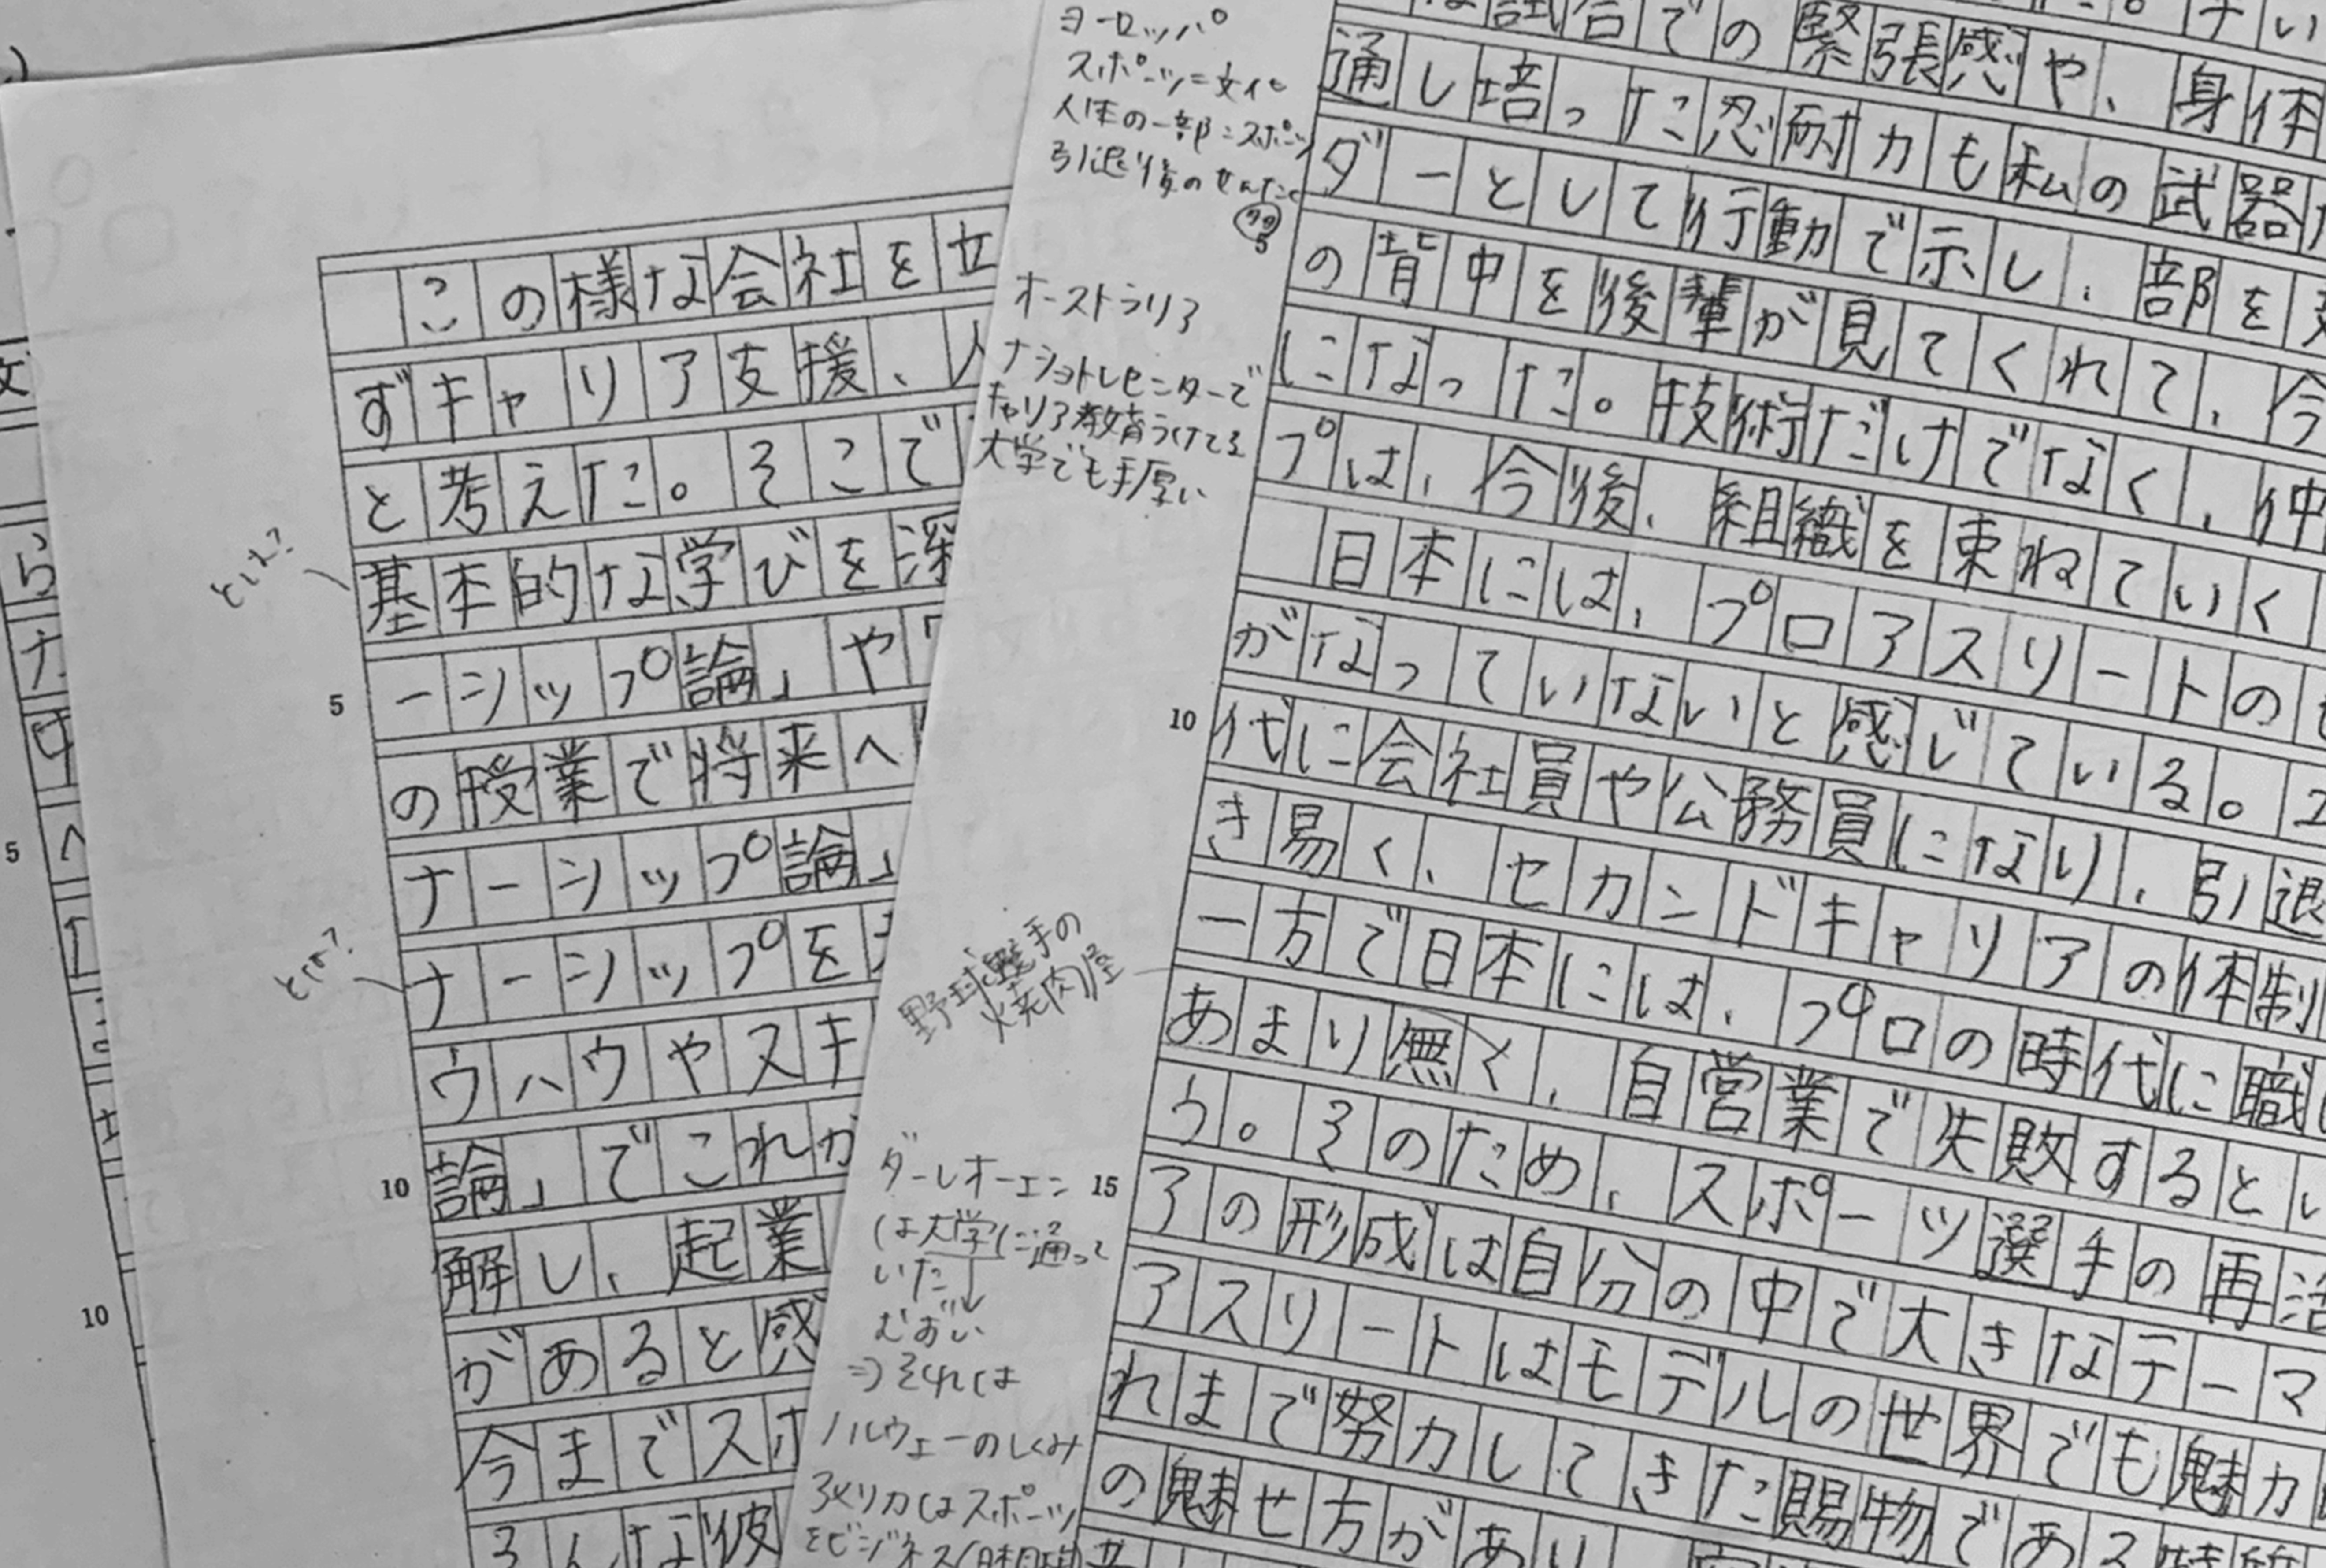 この様な会社を立
ずキャリア支援、人
と考えた。そこで
基本的な学びを深
ーシップ論」や「
の授業で将来へ
ナーシップ論」
ナーシップを
ウハウやスキ
論」でこれか
解し、起業
があると感
今までスポ
んな彼
5
10
とは?
とは?
5
10
ヨーロッパ
スポーツ=文化
人体の一部=スポーツ
引退後の
オーストラリア
ナショトレセンターで
キャリア教育うけてる
大学でも手厚い
野球選手の
焼肉屋
ダーレオーエン
は大学に通って
いた
むずい
⇒それは
ノルウェーのしくみ
アメリカはスポーツ
をビジネス
試合での緊張感や、身体
通し培った忍耐力も私の武器だ
ダーとして行動で示し、部を支
の背中を後輩が見てくれて、今
になった。技術だけでなく、仲
プは、今後、組織を束ねていく
日本には、プロアスリートのセ
がなっていないと感じている。エ
10
代に会社員や公務員になり、引退
き易く、セカンドキャリアの体制
一方で日本には、プロの時代に職
あまり無く、自営業で失敗するとい
う。そのため、スポーツ選手の再活
15
アの形成は自分の中で大きなテーマ
アスリートはモデルの世界でも魅力
れまで努力してきた賜物である
の魅せ方があり